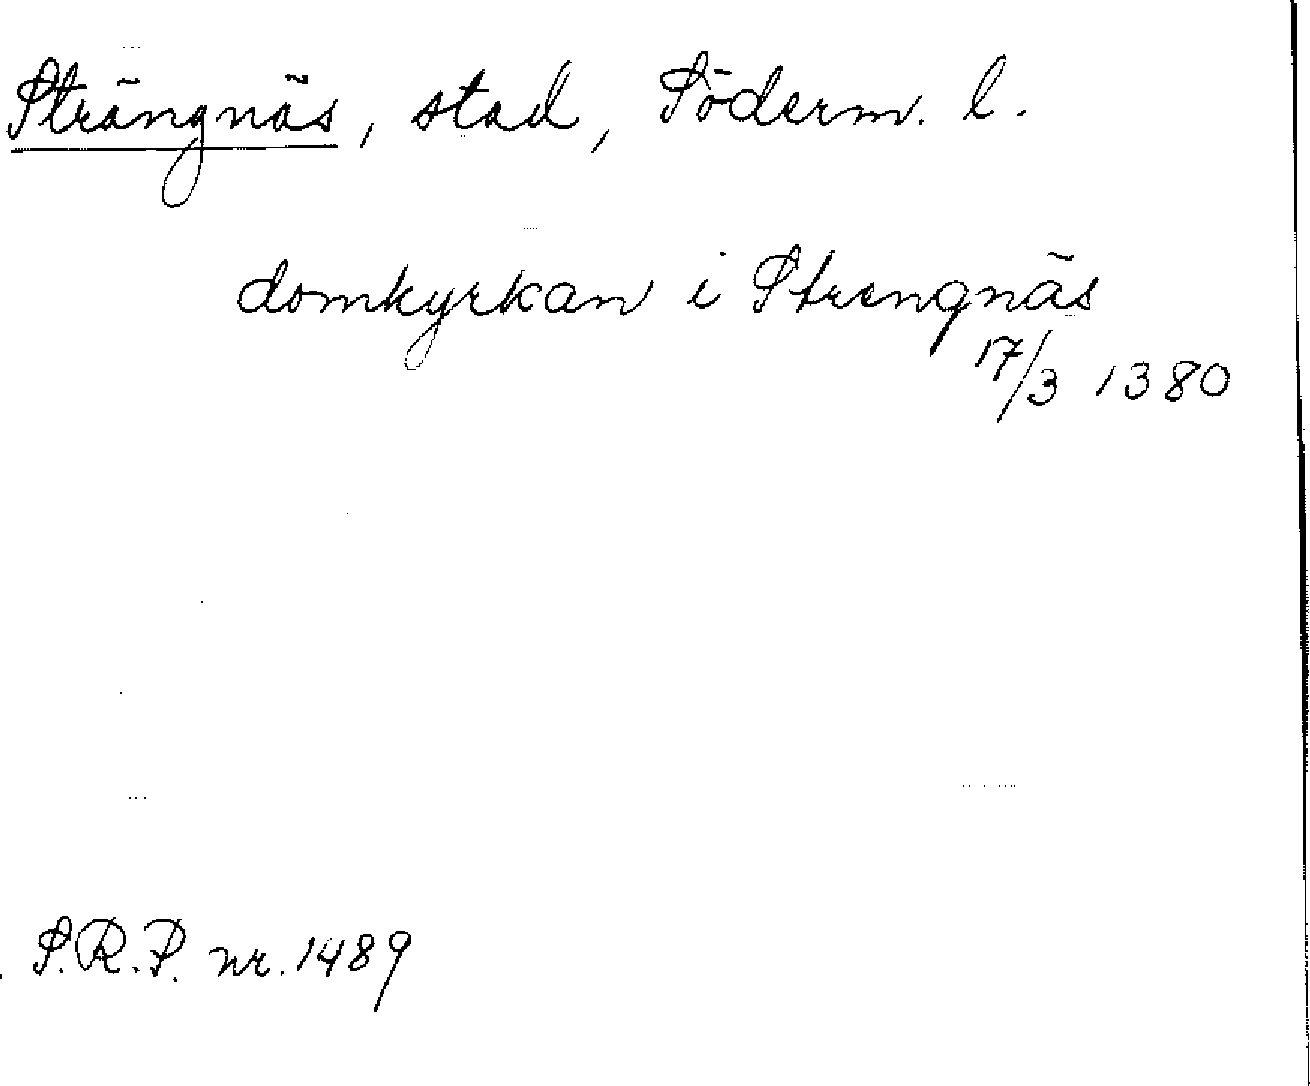 Strängnäs, stad, Söderm. l.
domkyrkan i Strengnäs
17/3 1380
S.R.P. nr. 1489